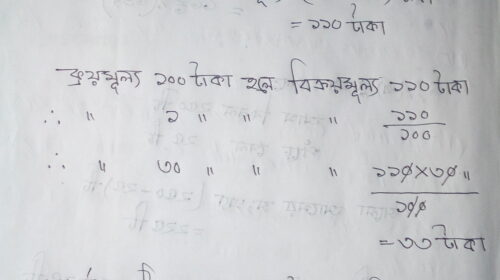 = ১১০ টাকা
ক্রয়মূল্য ১০০ টাকা হলে বিক্রয়মূল্য ১১০ টাকা
∴ " ১ " " " ১১০/১০০
∴ " ৩০ " " " ১১০×৩০/১০০ "
= ৩৩ টাকা